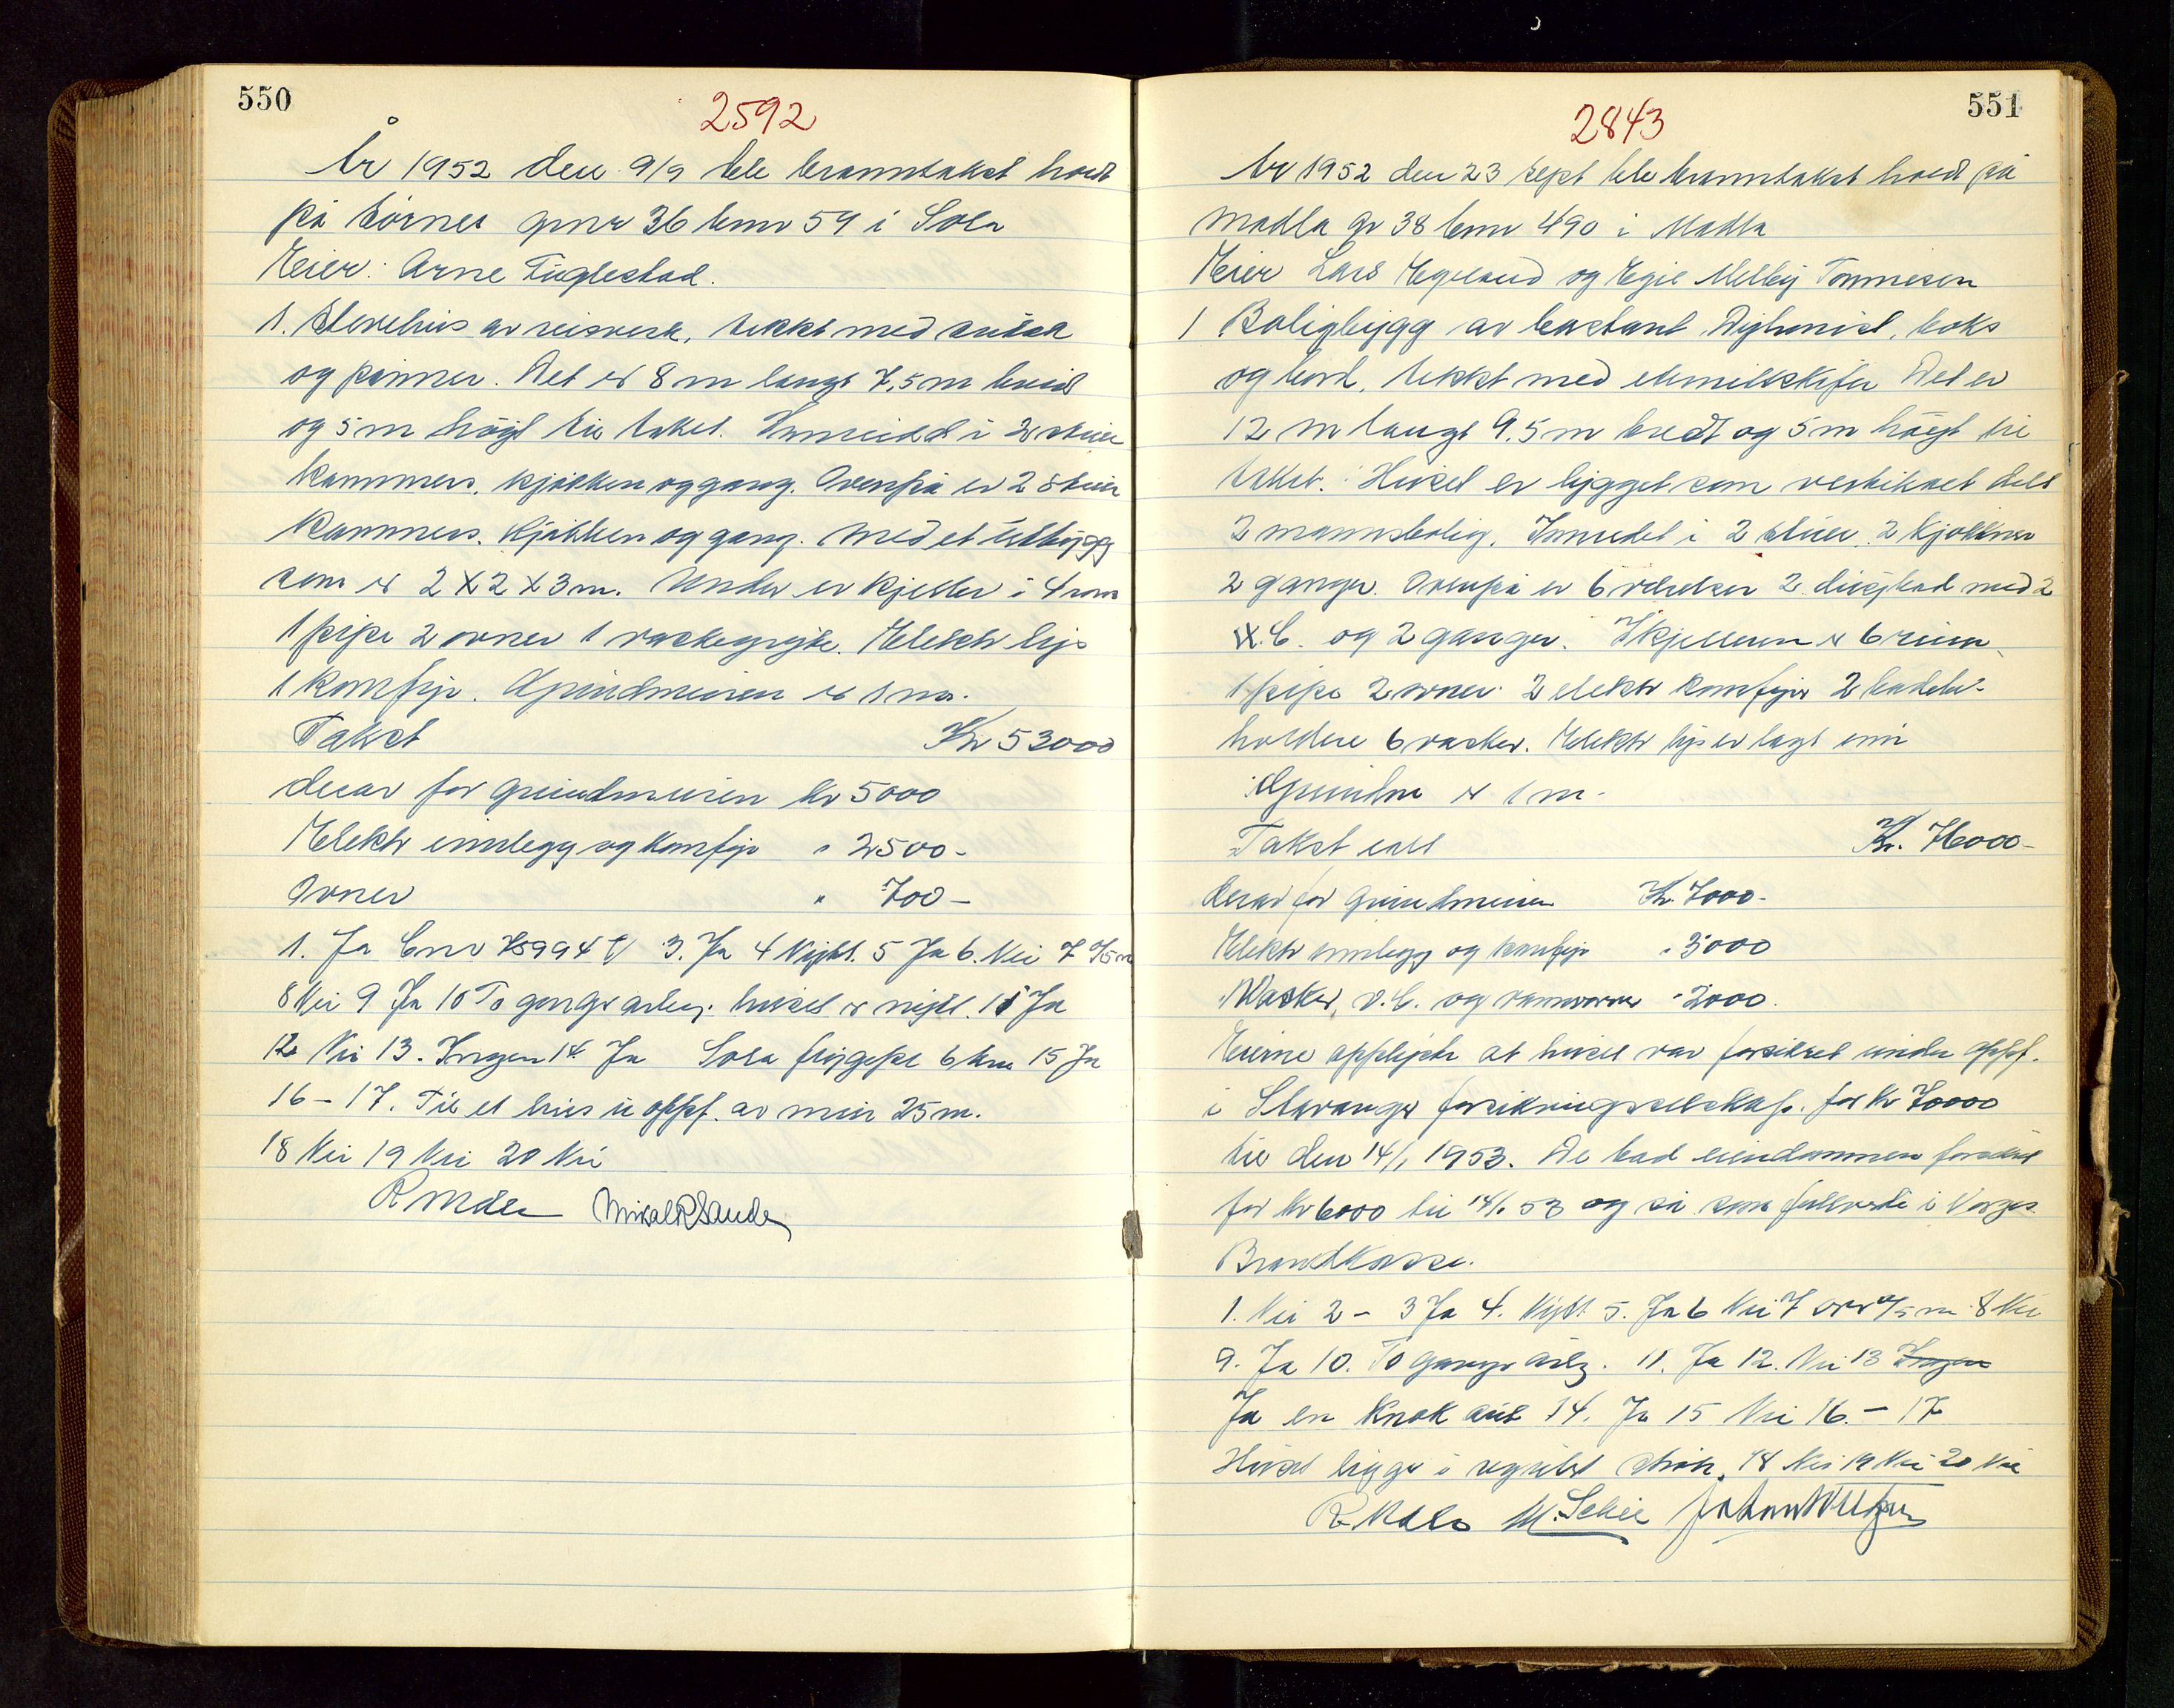 550
2592
År 1952 den 9/9 ble branntakst holdt
på gnr 36 bnr 59 i Sola
Eier: Arne Fuglestad.
1. av reisverk, tekkt med sutak
og panner. Det er 8 m langt 7,5 m breid
og 5 m högt til taket. Innreidd i 2 stuer
kammers, kjökken og gang. Ovenpå er 2 stuer
kammers. Kjökken og gang. Med et utbygg
som er 2 X 2 X 3 m. Under er kjeller i 4 rom
1 pipe 2 ovner 1 vaskegryte. Elektr lys
1 komfyr. Grundmuren er 1 m.
Takst Kr 53000
derav for grundmuren kr 5000
Elektr innlegg og komfyr " 2500-
Ovner " 700-
1. Ja 3. Ja 4 Nytt. 5 Ja 6. Nei 7
8 Nei 9 Ja 10 To ganger årleg. huset er nytt. 11 Ja
12 Nei 13. Ingen 14 Ja Sola 6 km 15 Ja
16 - 17. Til et hus u oppf. av mur 25 m.
18 Nei 19 Nei 20 Nei
551
2843
År 1952 den 23 sept ble branntakst holdt på
Madla gr 38 bnr 490 i Madla
Eier Lars Egeland og Egil Melby Tonnesen
1 Boligbygg av
og bord, tekkt med Det er
12 m langt 9.5 m bredt og 5 m högt til
taket. Huset er bygget som vertikalt delt
2 mannsbolig. Innredet i 2 stuer, 2 kjökkner
2 ganger. Ovenpå er 6 værelser 2 med 2
W.C. og 2 ganger. I kjelleren er 6 rum
1 pipe 2 ovner 2 elektr komfyr 2
holdere 6 vasker. Elektr lys er lagt inn
Grundm er 1 m.
Takst ialt Kr. 76000-
derav for grundmuren Kr. 7000-
Elektr innlegg og komfyr " 3000
Vasker, V.C. og " 2000.
Eierne opplyste at huset var forsikret under oppf.
i Stavanger forsikringsselskap. for Kr 70000
til den 14/1 1953. De bad eiendommen forsikret
for kr 6000 til 14/1 53 og så som fullverdi i Norges
Brandkasse.
1. Nei 2 - 3 Ja 4. Nytt 5. Ja 6 Nei 7 over 75 m 8 Nei
9. Ja 10. To ganger årlig. 11. Ja 12. Nei 13 Ingen
Ja en 14. Ja 15 Nei 16. - 17
Huset ligger i regulert strök. 18 Nei 19 Nei 20 Nei